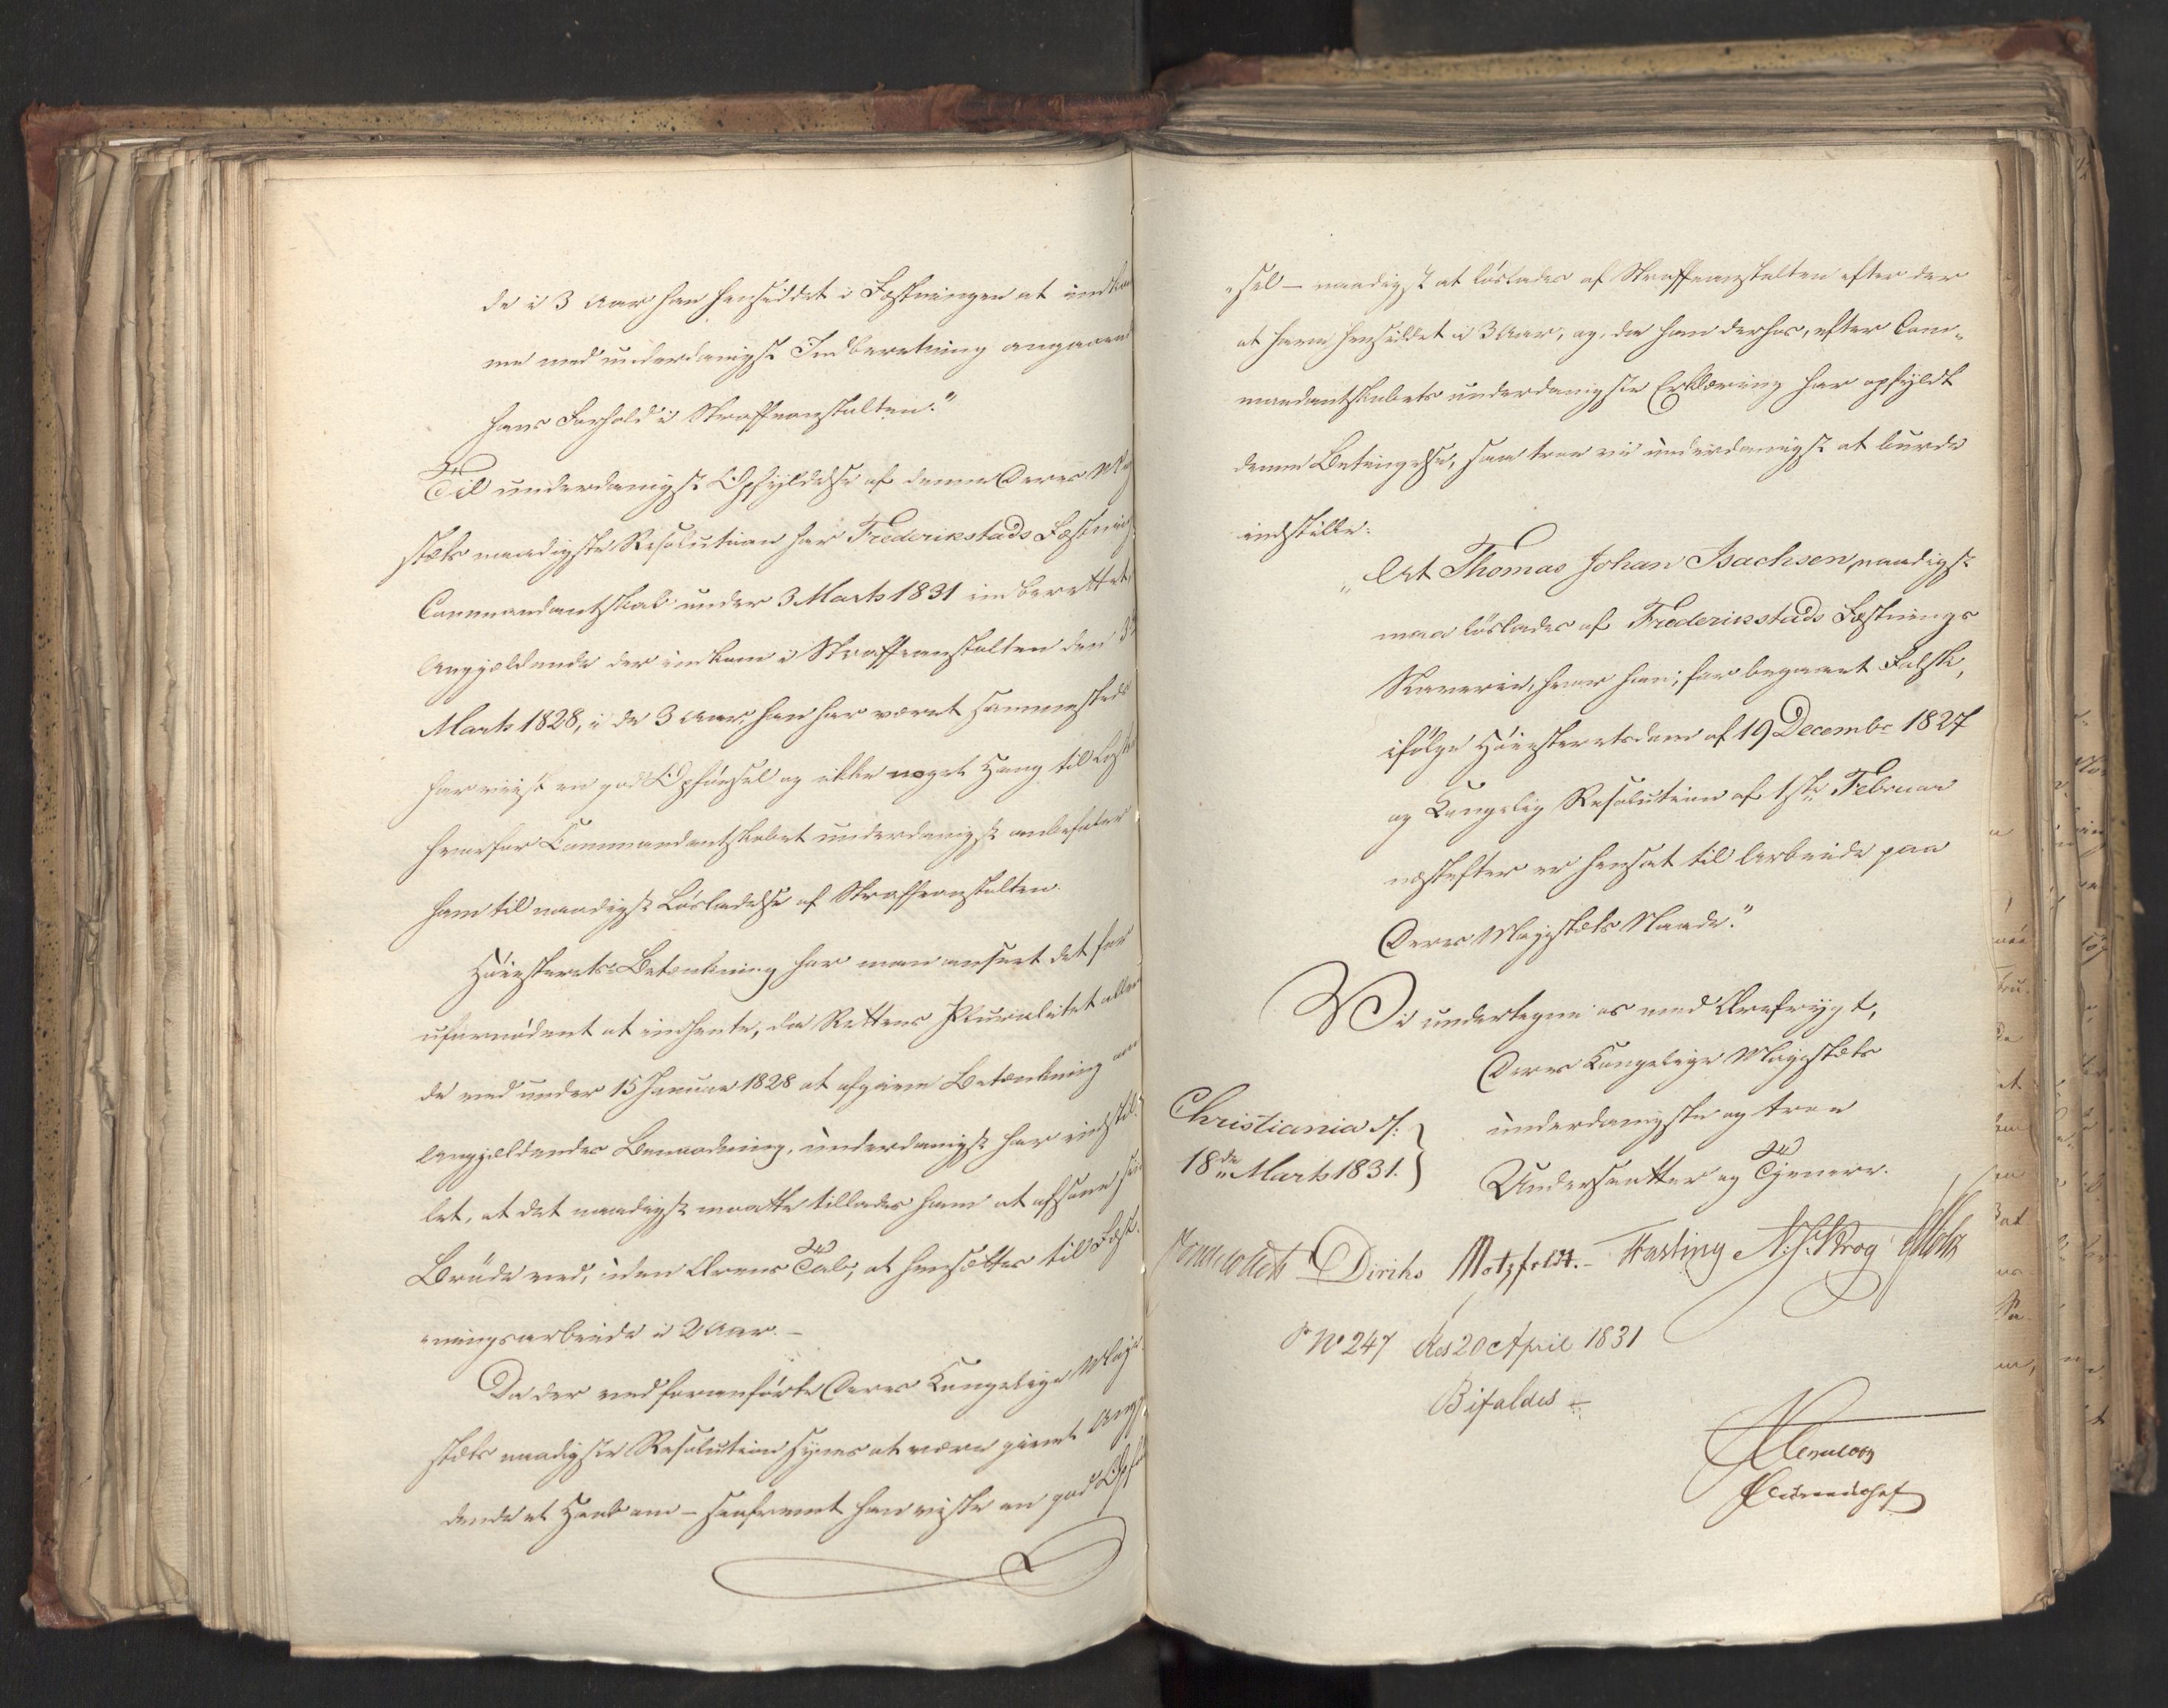 de i 3 Aar har hensiddet i Fæstningen at indkom
me med underdanigst Indberetning angaaen
hans Forhold i Straffeanstalten."
Til underdanigst Opfyldelse af denne Deres Maj
stæts naadigste Resolution har Frederikstads Fæstnings
Commandantskab under 3 Marts 1831 indberettet,
Angjældende der indkom i Straffeanstalten den 3
Marts 1828, i de 3 Aar, han har været sammesteds
har viist en god Opførsel og ikke noget Hang til Last
hvorfor Commandantskabet underdanigst anbefaler
ham til naadigst Løsladelse af Straffeanstalten.
Høiesterets Betænkning har man anseet det for
ufornødent at indhente, da Rettens Pluralitet aller
de ved under 15 Januar 1828 at afgive Betænkning om
Angjældendes Benaadning, underdanigst har indstil
let, at det naadigst maatte tillades ham at afsone sin
Brøde ved, uden Ærens Tab, at hensættes til Fæst
ningsarbeide i 2 Aar. –
Da der ved foranførte Deres Kongelige Maje
stæts naadigste Resolution synes at være givet Angj
dende et Haab om – saafremt han viste en god Opfø
sel – naadigst at løslades af Straffeanstalten efter der
at have hensiddet i 3 Aar, og, da han derhos, efter Com
mandantskabets underdanigste Erklæring har opfyldt
denne Betingelse, saa troe vi underdanigst at burde
indstille:
"At Thomas Johan Isachsen naadigst
maa løslades af Frederiksstads Fæstnings
Slaverie, hvor han, for begaaet Falsk,
ifølge Høiesteretsdom af 19 Decembr 1827
og Kongelig Resolution af 1ste Februar
næstefter er hensat til Arbeide paa
Deres Majestæts Naade."
Vi undertegne os med Ærefrygt,
Deres Kongelige Majestæts
Christiania d: underdanigste og troe
18de Marts 1831. Undersaatter og Tjenere.
Diriks Motzfeldt. Fasting N. J. Krog
No 247 Res 20 April 1831
Bifaldes